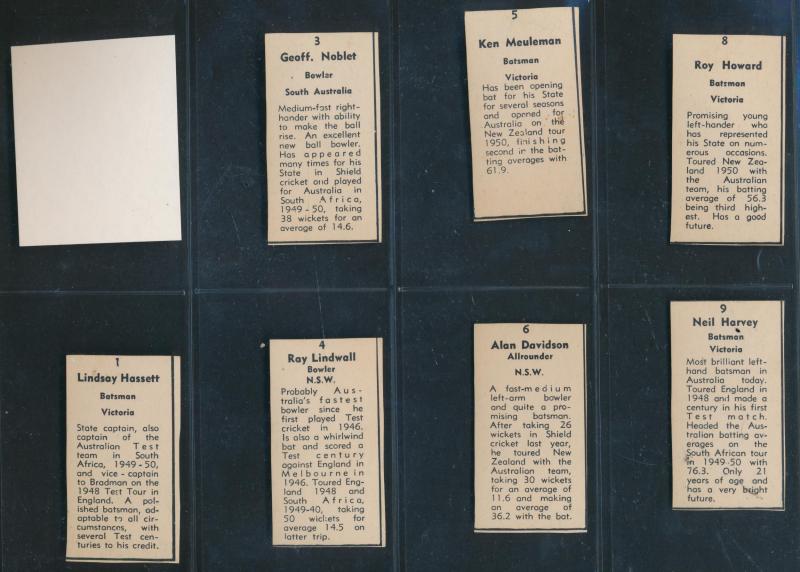 3
Geoff. Noblet
Bowler
South Australia
Medium-fast right-
hander with ability
to make the ball
rise. An excellent
new ball bowler.
Has appeared
many times for his
State in Shield
cricket and played
for Australia in
South Africa,
1949-50, taking
38 wickets for an
average of 14.6.
5
Ken Meuleman
Batsman
Victoria
Has been opening
bat for his State
for several seasons
and opened for
Australia on the
New Zealand tour
1950, finishing
second in the bat-
ting averages with
61.9.
8
Roy Howard
Batsman
Victoria
Promising young
left-hander who
has represented
his State on num-
erous occasions.
Toured New Zea-
land 1950 with
the Australian
team, his batting
average of 56.3
being third high-
est. Has a good
future.
1
Lindsay Hassett
Batsman
Victoria
State captain, also
captain of the
Australian Test
team in South
Africa, 1949-50,
and vice-captain
to Bradman on the
1948 Test Tour in
England. A pol-
ished batsman, ad-
aptable to all cir-
cumstances, with
several Test cen-
turies to his credit.
4
Ray Lindwall
Bowler
N.S.W.
Probably Aus-
tralia's fastest
bowler since he
first played Test
cricket in 1946.
Is also a whirlwind
bat and scored a
Test century
against England in
Melbourne in
1946. Toured Eng-
land 1948 and
South Africa,
1949-40, taking
50 wickets for
average 14.5 on
latter trip.
6
Alan Davidson
Allrounder
N.S.W.
A fast-medium
left-arm bowler
and quite a pro-
mising batsman.
After taking 26
wickets in Shield
cricket last year,
he toured New
Zealand with the
Australian team,
taking 30 wickets
for an average of
11.6 and making
an average of
36.2 with the bat.
9
Neil Harvey
Batsman
Victoria
Most brilliant left-
hand batsman in
Australia today.
Toured England in
1948 and made a
century in his first
Test match.
Headed the Aus-
tralian batting av-
erages on the
South African tour
in 1949-50 with
76.3. Only 21
years of age and
has a very bright
future.